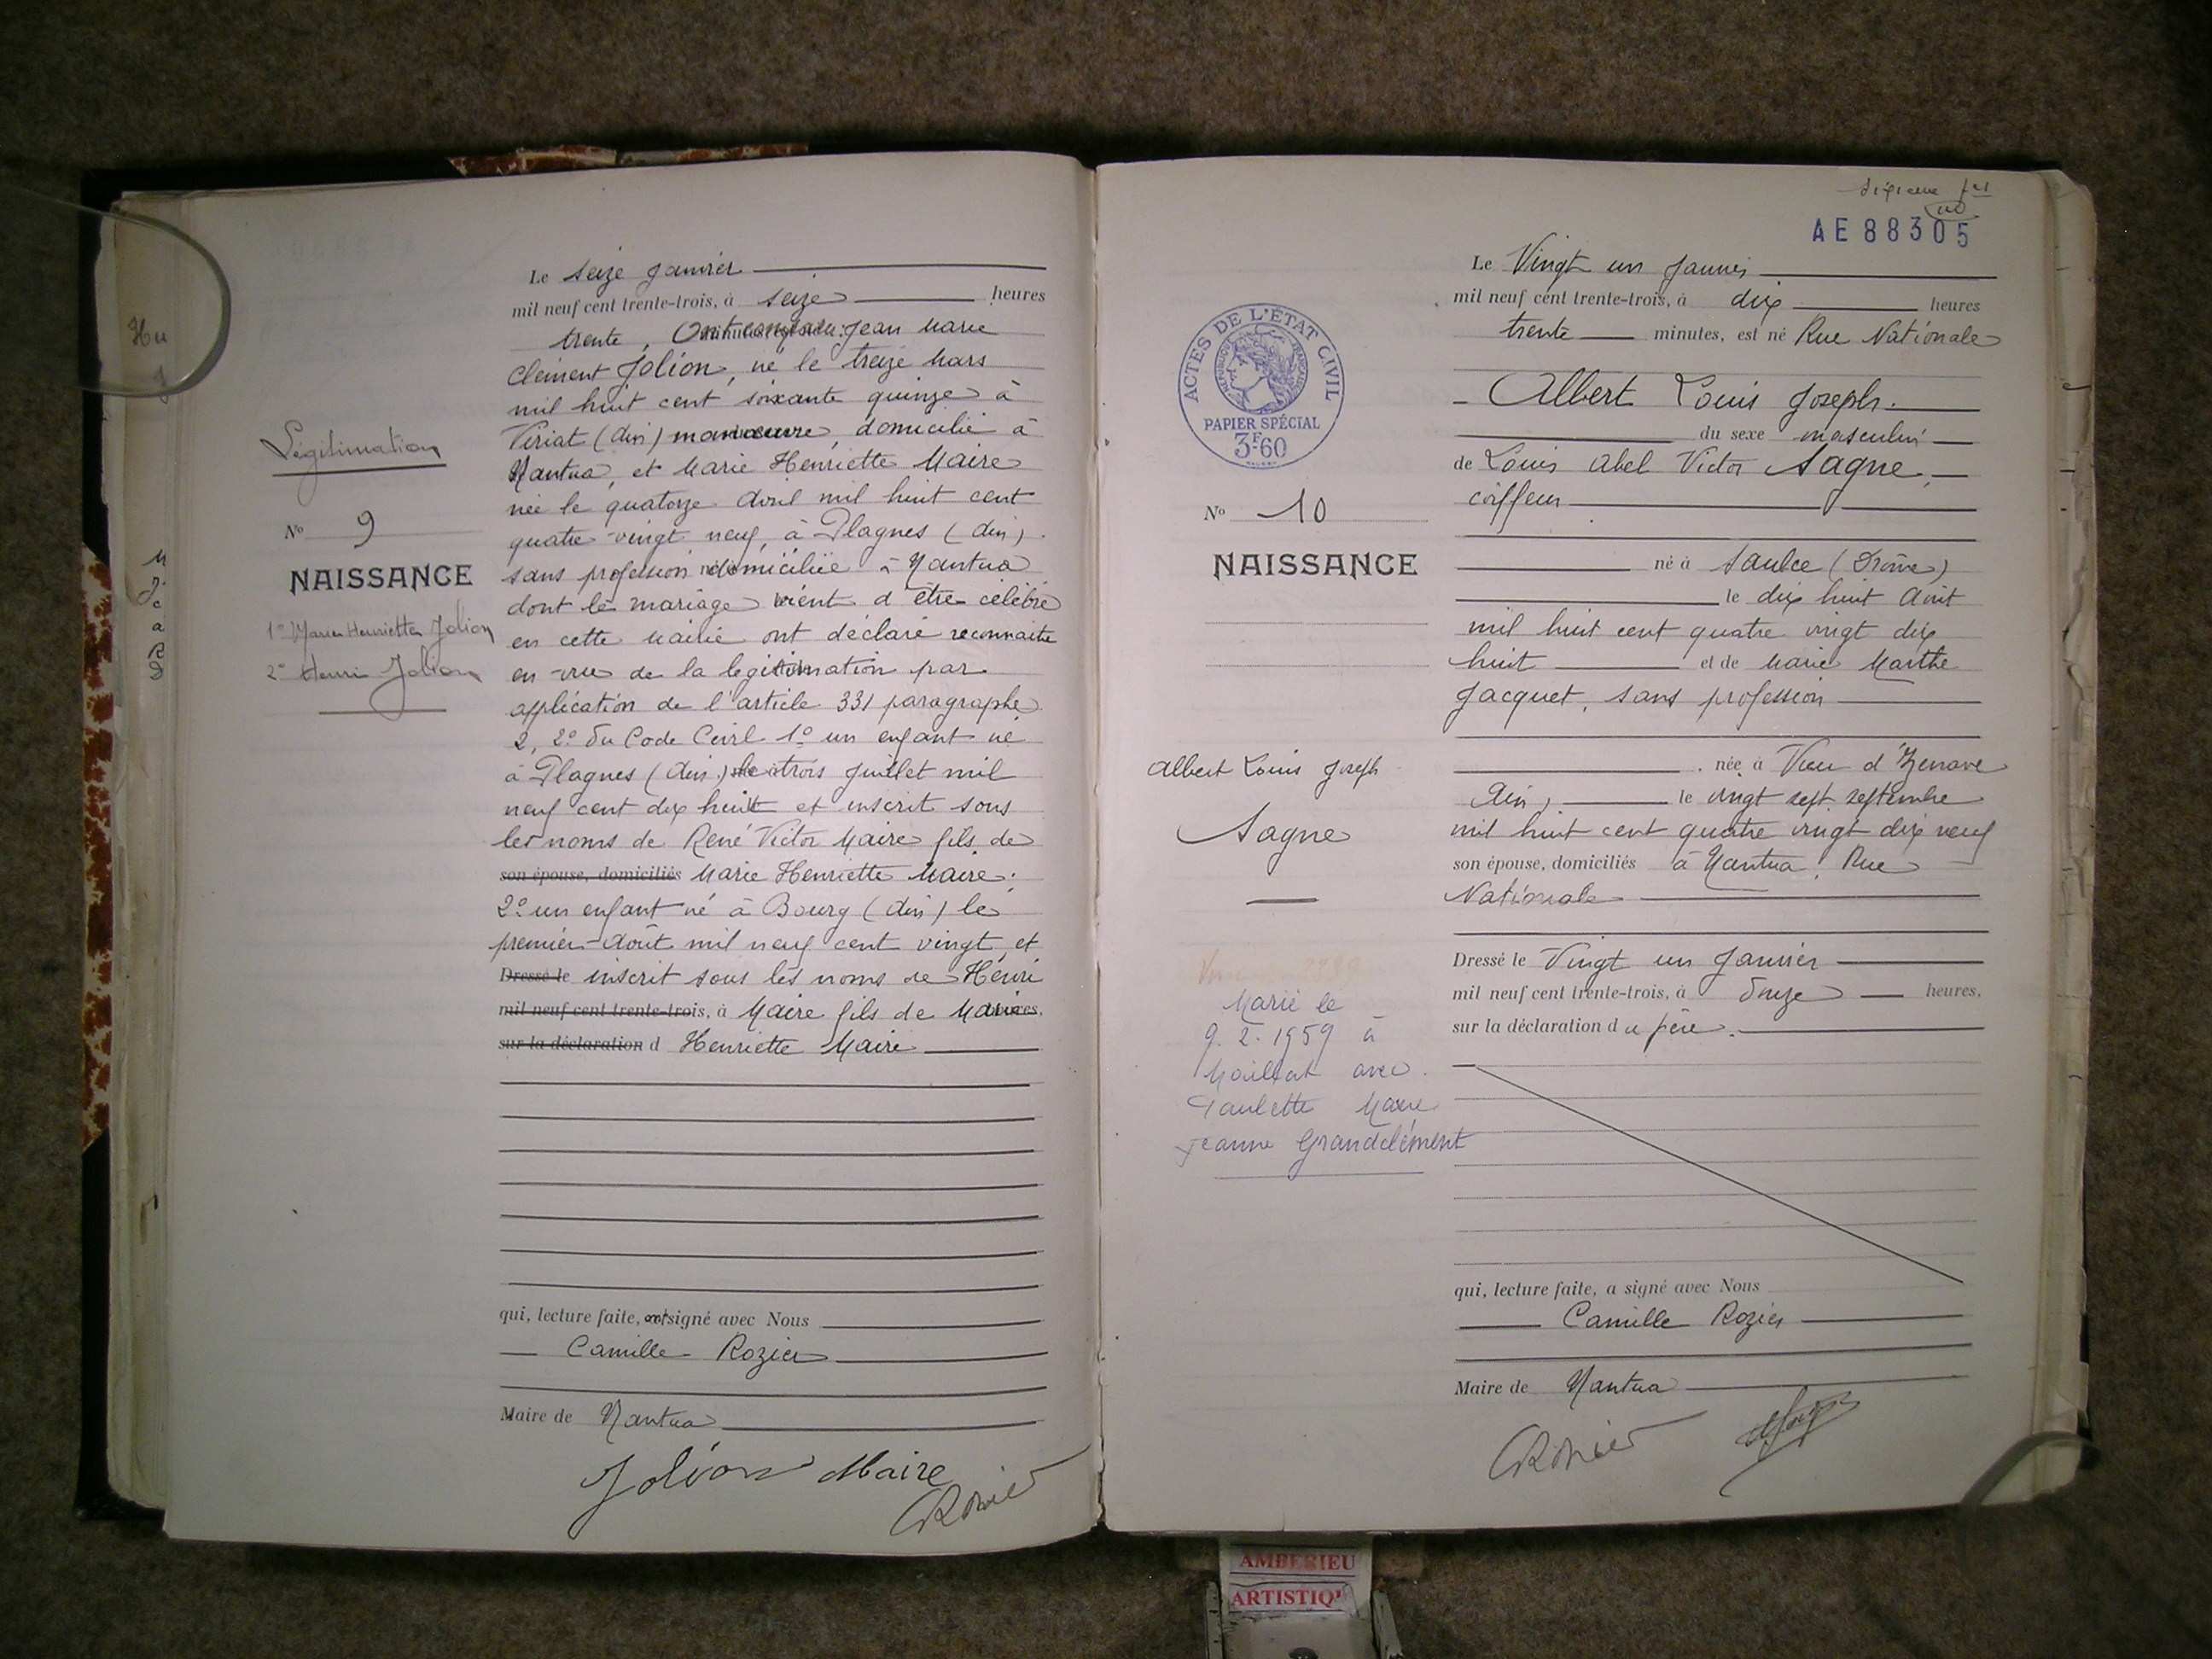 Légitimation
No 9
NAISSANCE
1º Marie Henriette Jolion
2º Henri Jolion
Le seize Janvier
mil neuf cent trente-trois, à seize heures
trente, Ont comparu: Jean Marie
Clément Jolion, né le treize Mars
mil huit cent soixante quinze à
Viriat (Ain) manœuvre, domicilié à
Nantua, et Marie Henriette Maire
née le quatorze Avril mil huit cent
quatre-vingt neuf, à Plagnes (Ain)
sans profession domiciliée à Nantua
dont le mariage vient d'être célébré
en cette Mairie ont déclaré reconnaitre
en vue de la légitimation par
application de l'article 331 paragraphe
2, 2º du Code Civil 1º un enfant né
à Plagnes (Ain) le trois Juillet mil
neuf cent dix huit et inscrit sous
les noms de René Victor Maire fils de
son épouse, domiciliés Marie Henriette Maire;
2º un enfant né à Bourg (Ain) le
premier Août mil neuf cent vingt, et
Dressé le inscrit sous les noms de Henri
mil neuf cent trente-trois, à Maire fils de Marie
sur la déclaration d Henriette Maire
qui, lecture faite, ont signé avec Nous
Camille Rozier
Maire de Nantua
Jolion Maire
CRozier
AE 88305
ACTES DE L'ÉTAT CIVIL
RÉPUBLIQUE FRANÇAISE
PAPIER SPÉCIAL
3F.60
No 10
NAISSANCE
Albert Louis Joseph
Sagne
Marié le
9.2.1959 à
Maillat avec
Paulette Marie
Jeanne Grandclément
Le Vingt un Janvier
mil neuf cent trente-trois, à dix heures
trente minutes, est né Rue Nationale
Albert Louis Joseph.
du sexe masculin
de Louis Abel Victor Sagne,
coiffeur
né à Saulce (Drôme)
le dix huit Août
mil huit cent quatre vingt dix
huit et de Marie Marthe
Jacquet, sans profession
née à Vieu d'Izenave
Ain, le vingt sept septembre
mil huit cent quatre vingt dix neuf
son épouse, domiciliés à Nantua, Rue
Nationale
Dressé le Vingt un Janvier
mil neuf cent trente-trois, à douze heures,
sur la déclaration du père.
qui, lecture faite, a signé avec Nous
Camille Rozier
Maire de Nantua
CRozier
AMBERIEU
ARTISTIQU